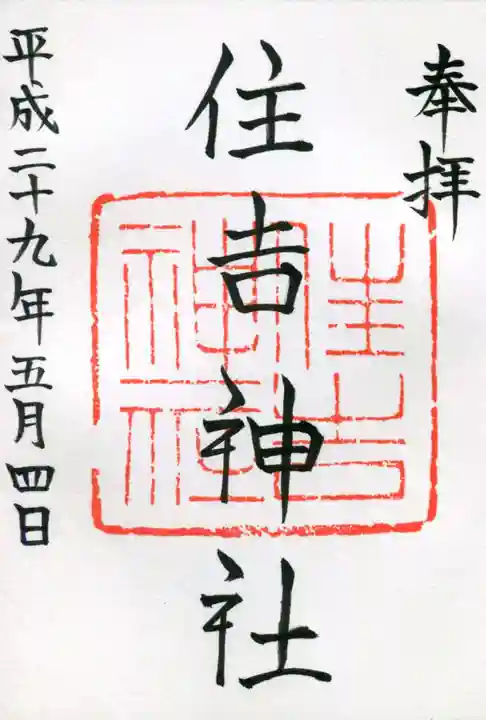 奉拝
住吉神社
住吉神社
平成二十九年五月四日